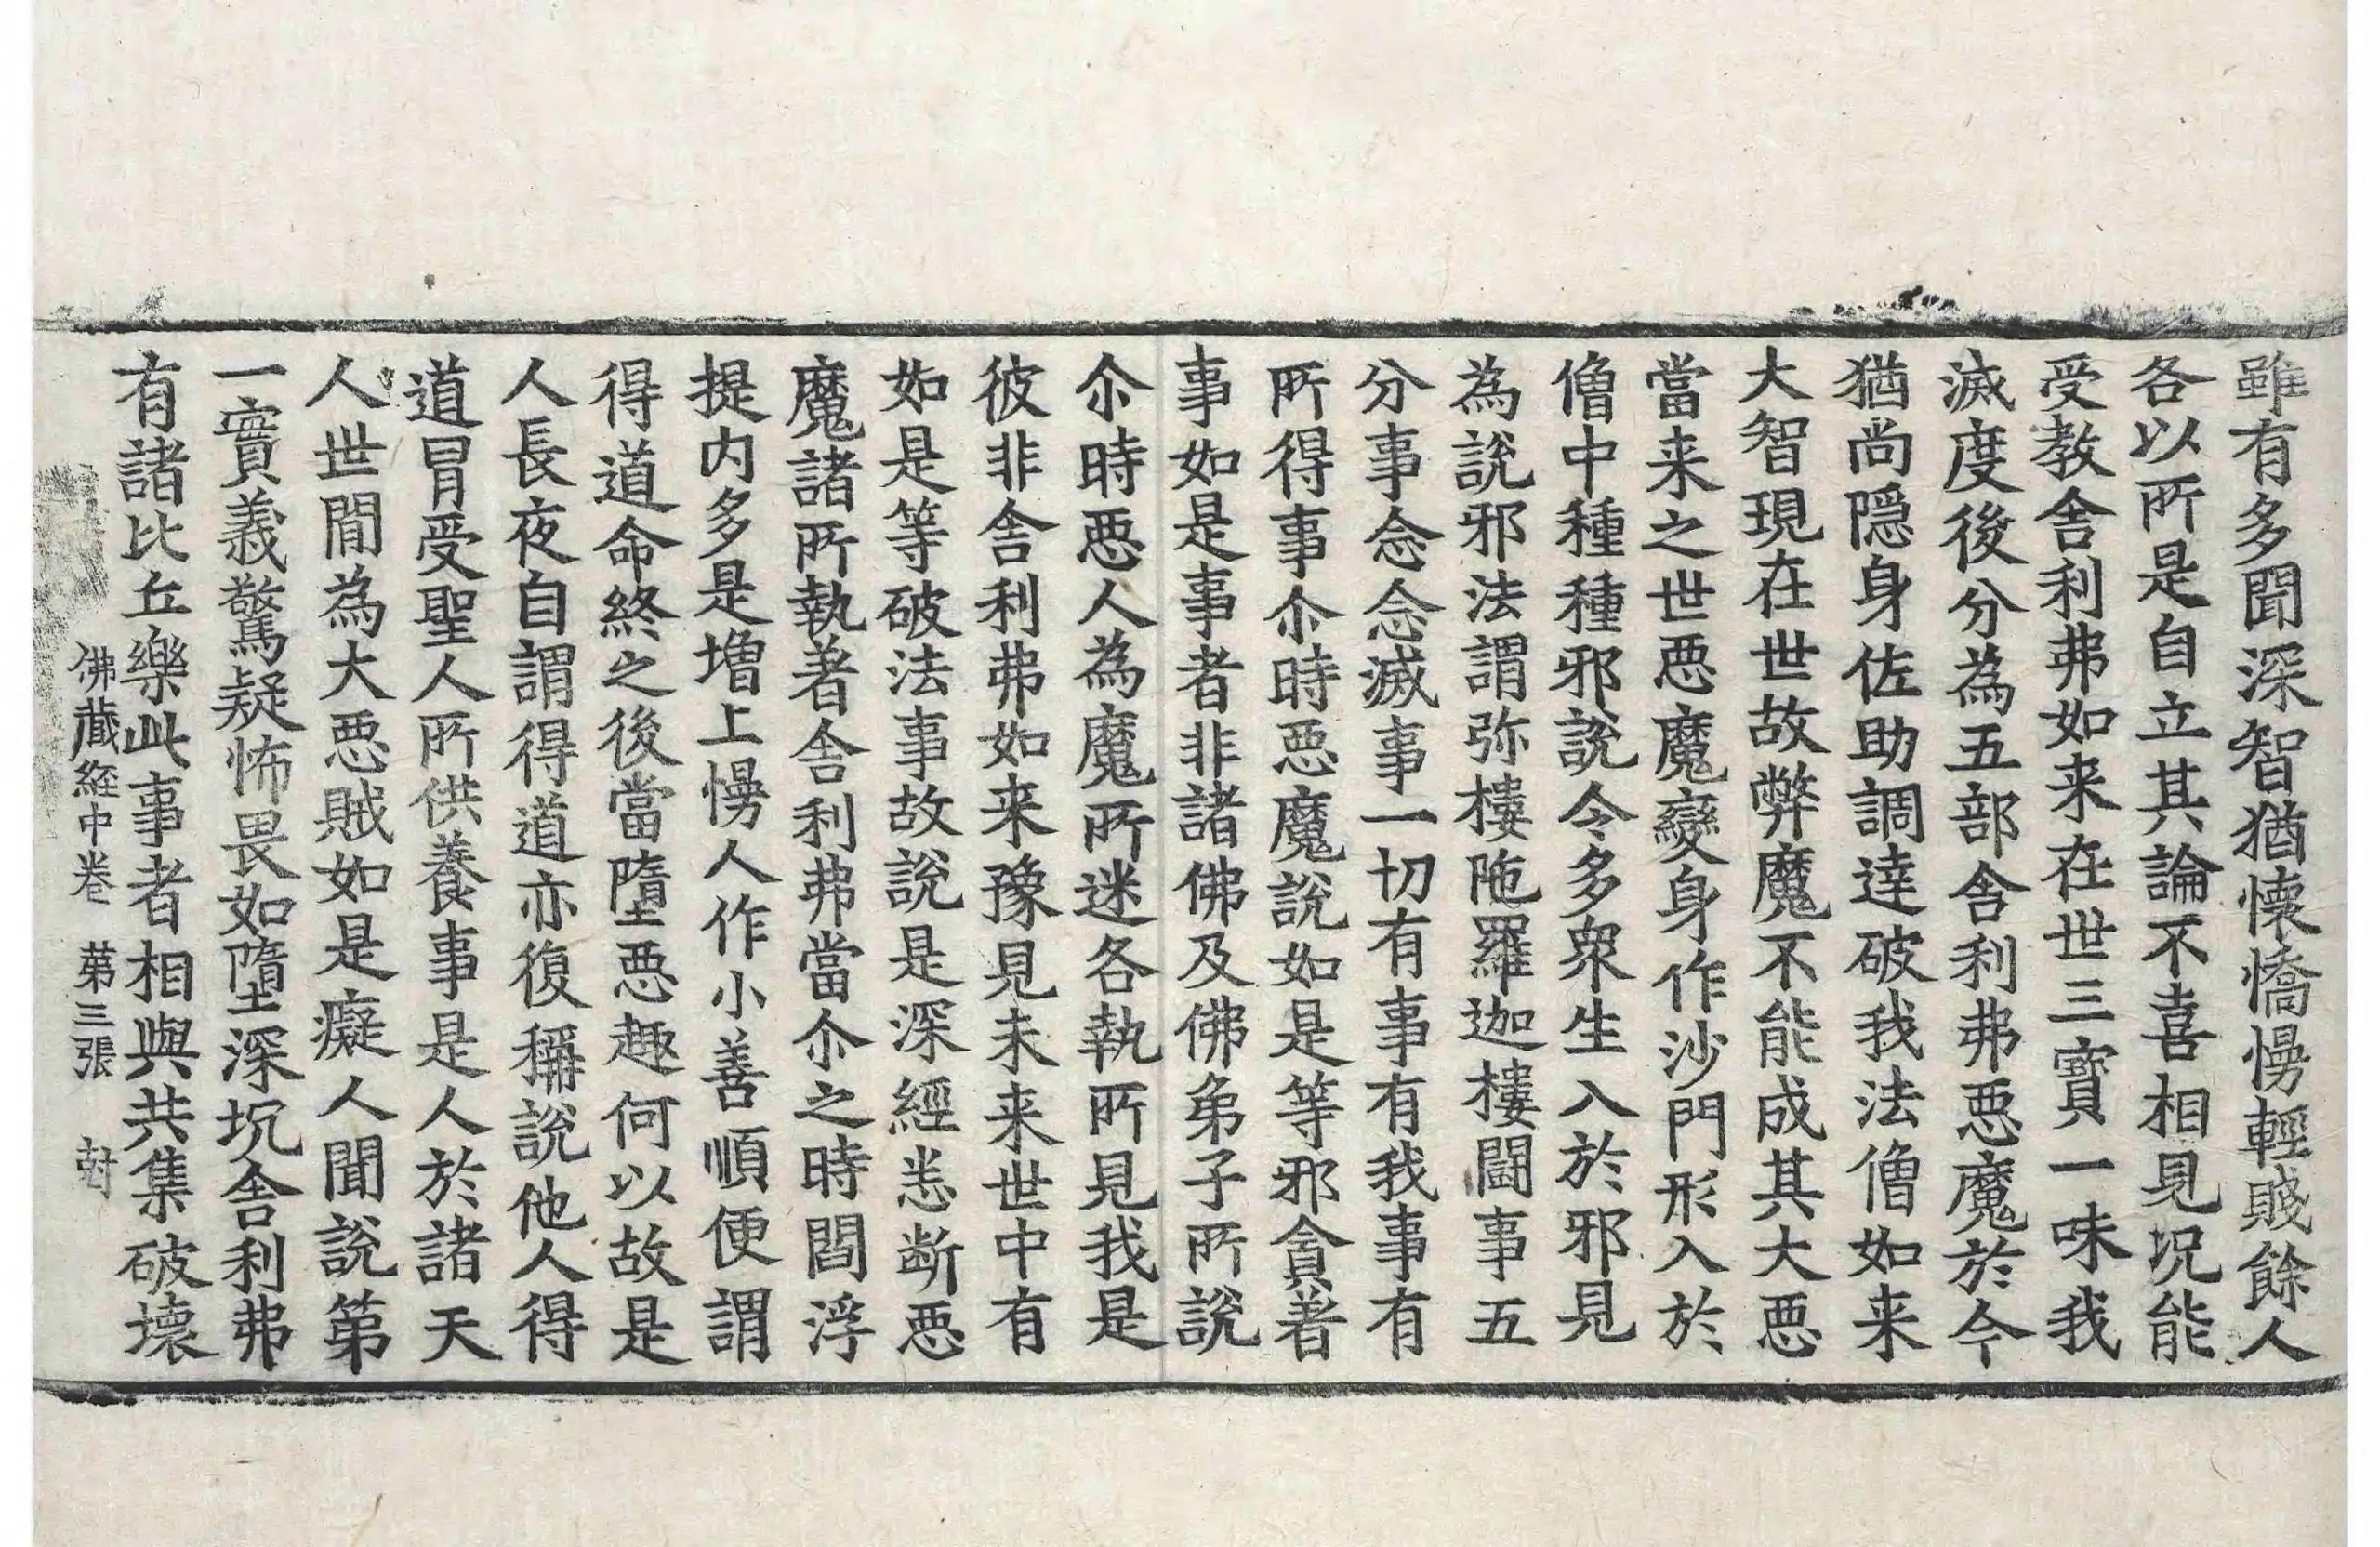 雖有多聞深智猶懷憍慢輕賤餘人
各以所是自立其論不喜相見况能
受教舍利弗如来在世三寳一味我
滅度後分為五部舍利弗惡魔於今
猶尚隱身佐助調達破我法僧如来
大智現在世故弊魔不能成其大惡
當来之世惡魔變身作沙門形入於
僧中種種邪說令多衆生入於邪見
為說邪法謂弥樓陁羅迦樓闘事五
分事念念滅事一切有事有我事有
所得事尒時惡魔說如是等邪貪著
事如是事者非諸佛及佛弟子所說
尒時惡人為魔所迷各執所見我是
彼非舍利弗如来豫見未来世中有
如是等破法事故說是深經悉斷惡
魔諸所執著舍利弗當尒之時閻浮
提内多是增上慢人作小善順便謂
得道命終之後當墮惡趣何以故是
人長夜自謂得道亦復稱說他人得
道冒受聖人所供養事是人於諸天
人世間為大惡賊如是癡人聞說第
一實義驚疑怖畏如墮深坑舍利弗
有諸比丘樂此事者相與共集破壞
佛藏経中卷 第三張 尌